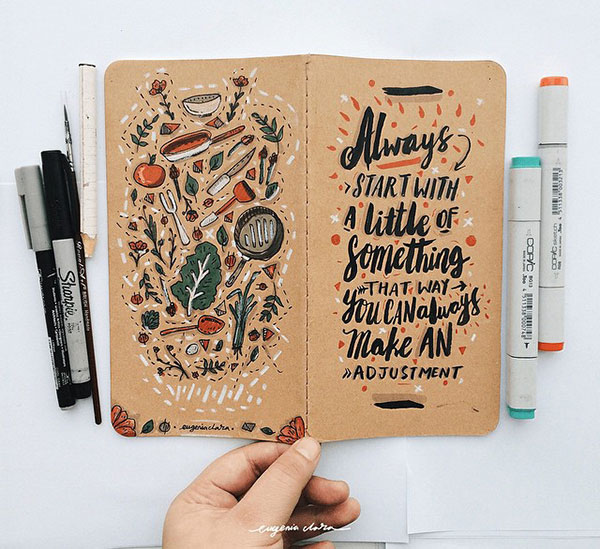 Always
START WITH
A little OF
Something
THAT WAY
YOU CAN always
Make AN
ADJUSTMENT
eugenia clara.
Sharpie
COPIC
sketch
COPIC
eugenia clara